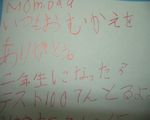 Mom.Dad
いつもおむかえを
ありがとう。
二年生になったら
テスト100てんとるよ